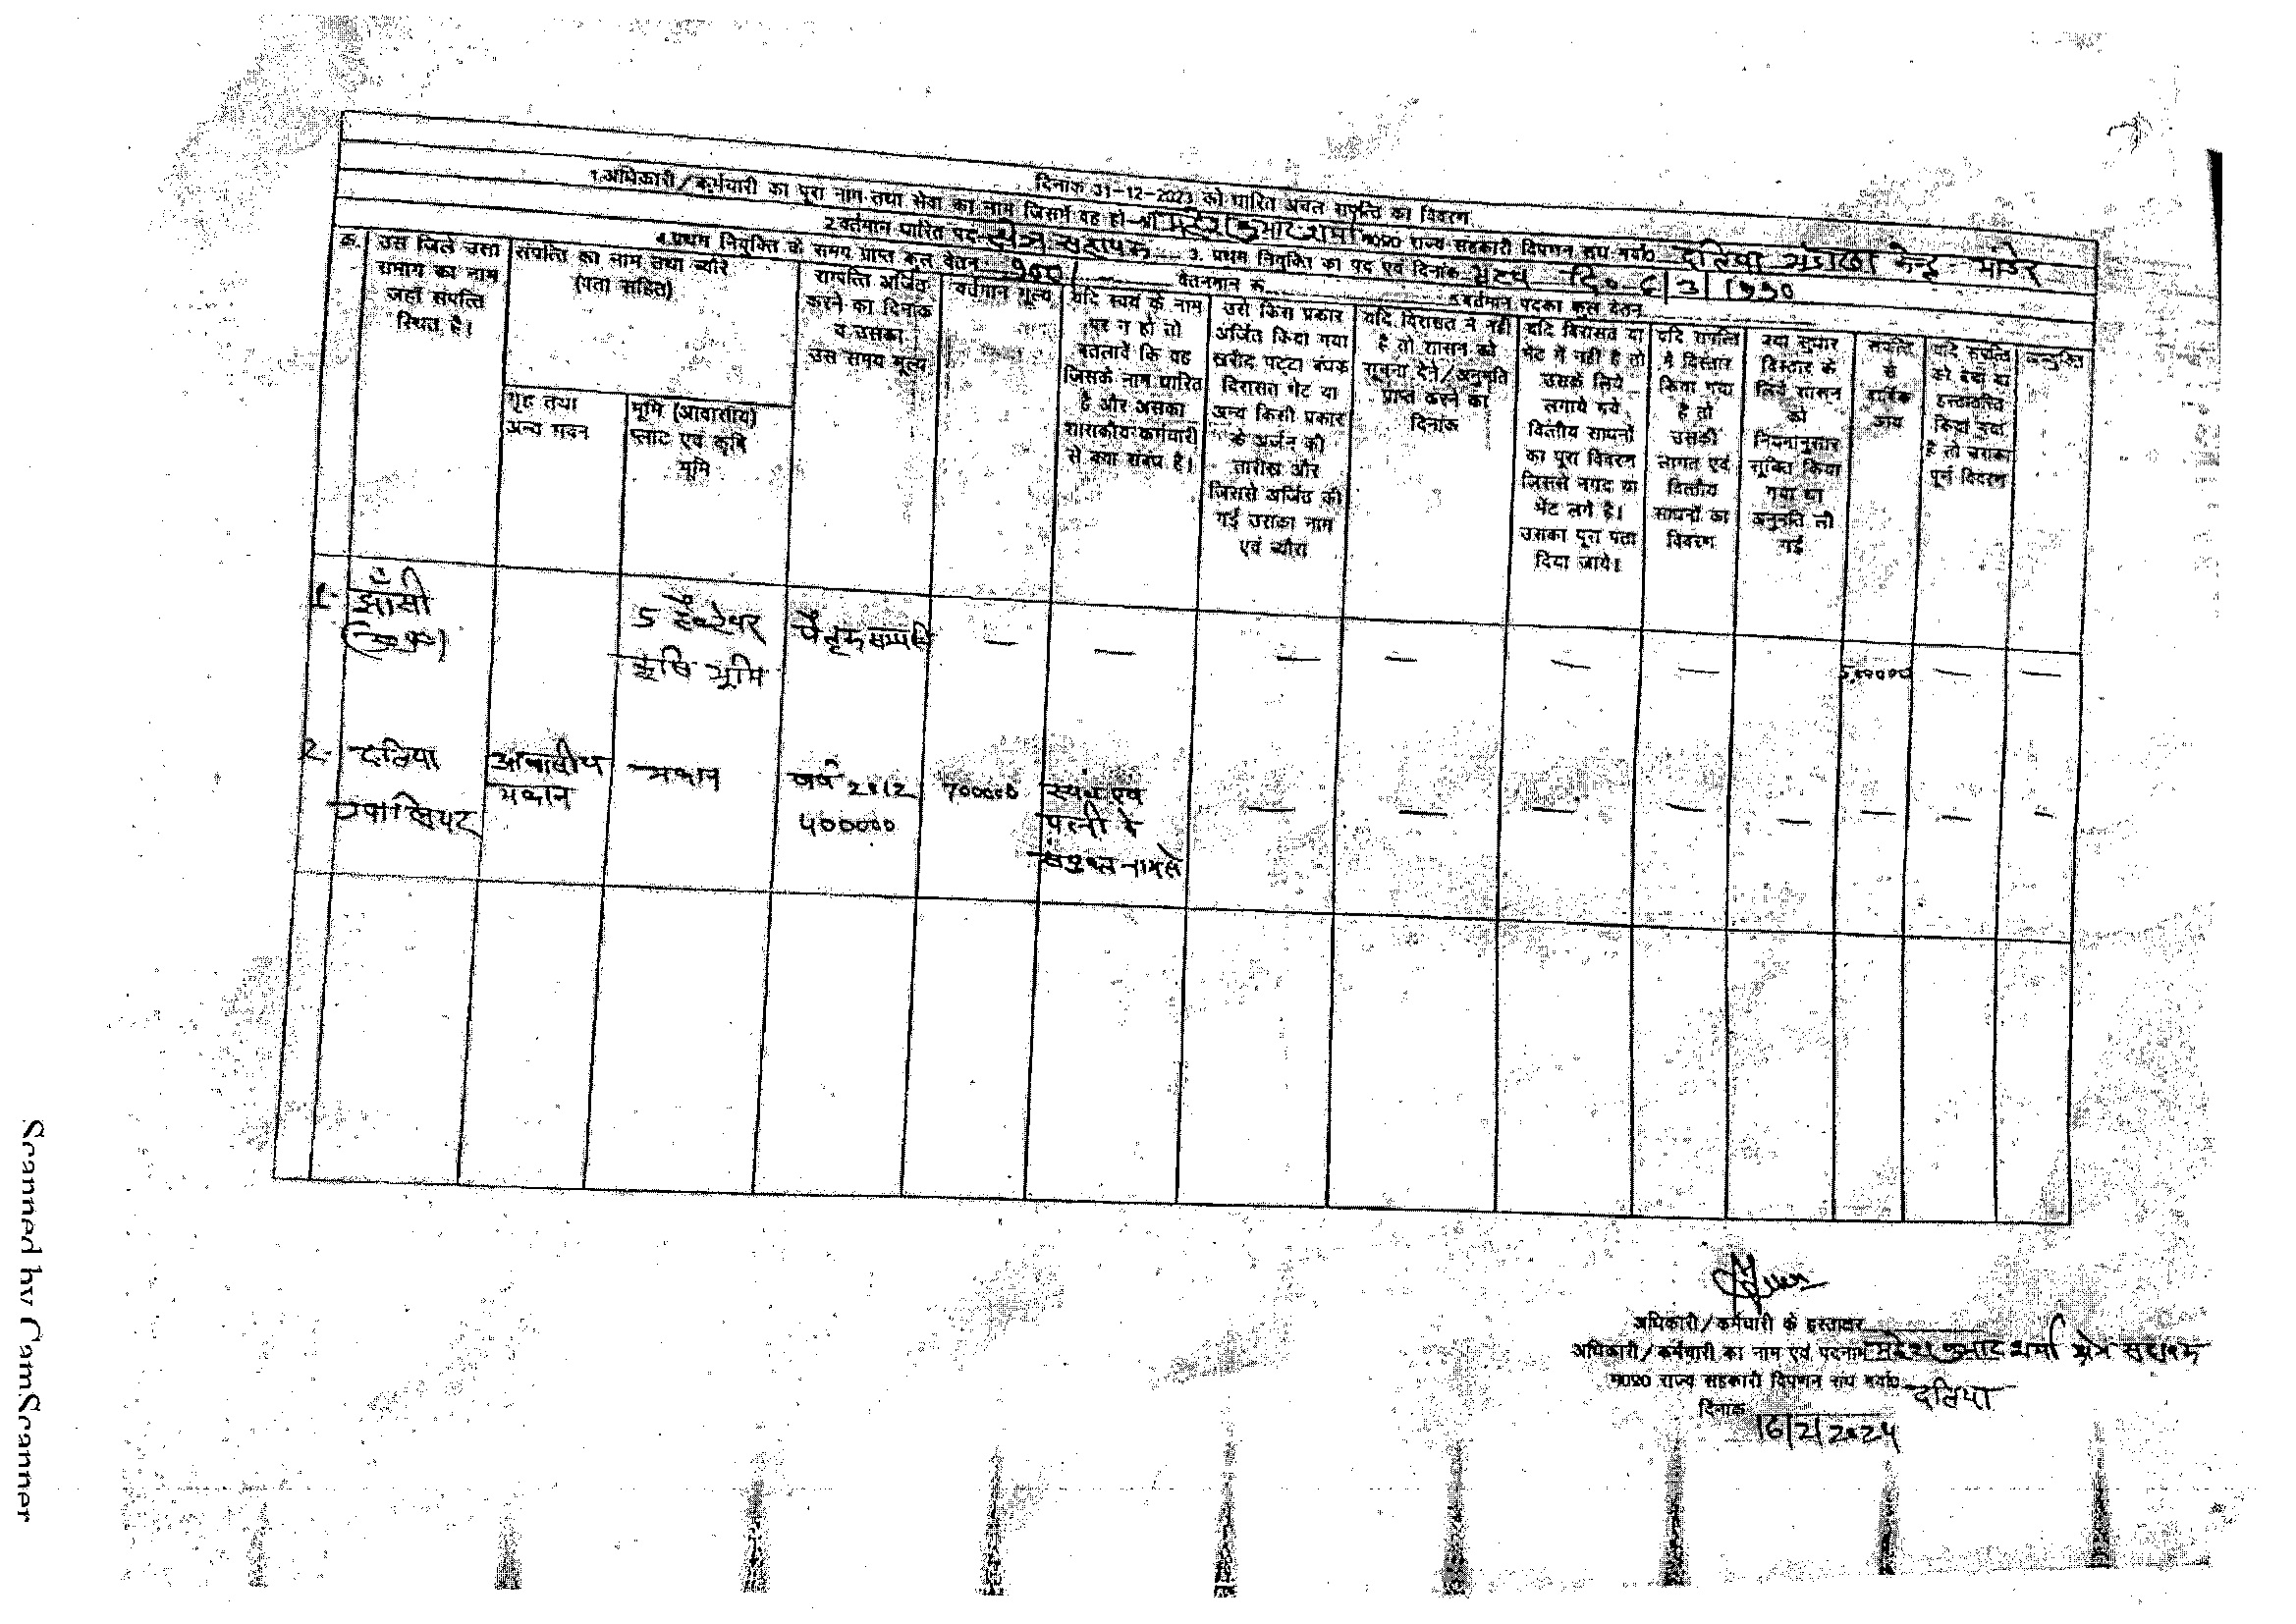 दिनांक 31-12-2023 को धारित अचल संपत्ति का विवरण
1.अधिकारी/कर्मचारी का पूरा नाम तथा सेवा का नाम जिसमें वह हो-श्री महेश कुमार शर्मा म0प्र0 राज्य सहकारी विपणन संघ मर्या0 दतिया भण्डारण केन्द्र - भांडेर
2.वर्तमान धारित पद क्षेत्र सहायक 3. प्रथम नियुक्ति का पद एवं दिनांक भृत्य दि० 6/3/1990
4.प्रथम नियुक्ति के समय प्राप्त कुल वेतन वेतनमान रू. 5.वर्तमान पदका कुल वेतन
क्र.
उस जिले
का नाम
जहाँ संपत्ति
स्थित है।
संपत्ति का नाम तथा ब्यौरे
(पता सहित)
गृह तथा
अन्य भवन
भूमि (आवासीय)
प्लाट एवं कृषि
भूमि
सम्पत्ति अर्जित
करने का दिनांक
व उसका
उस समय मूल्य
वर्तमान मूल्य
यदि स्वयं के नाम
पर न हो तो
बतलावें कि वह
जिसके नाम धारित
है और उसका
शासकीय कर्मचारी
से क्या संबंध है।
उसे किस प्रकार
अर्जित किया गया
खरीद पट्टा बंधक
विरासत भेंट या
अन्य किसी प्रकार
के अर्जन की
तारीख और
जिससे अर्जित की
गई उसका नाम
एवं ब्यौरा
यदि विरासत में नही
है तो शासन को
सूचना देने/अनुमति
प्राप्त करने का
दिनांक
यदि विरासत या
भेंट में नहीं है तो
उसके लिये
लगाये गये
वित्तीय साधनों
का पूरा विवरण
जिससे नगद या
भेंट लगे है।
उसका पूरा पता
दिया जाये।
यदि सम्पत्ति
में विस्तार
किया गया
है तो
उसकी
लागत एवं
वित्तीय
साधनों का
विवरण
क्या सुधार
विस्तार के
लिये शासन
को
नियमानुसार
सूचित किया
गया या
अनुमति ली
गई
संपत्ति
से
वार्षिक
आय
यदि संपत्ति
को बेचा या
हस्तांतरित
किया गया
है तो उसका
पूर्ण विवरण
1- झाँसी
(उ०प्र०)
5 हेक्टेयर
कृषि भूमि
पैतृक सम्पत्ति
— — — — — — — —
2- दतिया
ग्वालियर
आवासीय
मकान
मकान
वर्ष 2012
400000
700000
स्वयं एवं
पत्नी के
संयुक्त नाम से
— — — — — — — —
अधिकारी/कर्मचारी के हस्ताक्षर
अधिकारी/कर्मचारी का नाम एवं पदनाम महेश कुमार शर्मा क्षेत्र सहायक
म0प्र0 राज्य सहकारी विपणन संघ मर्या0 दतिया
दिनांक 16/2/2024
Scanned by CamScanner